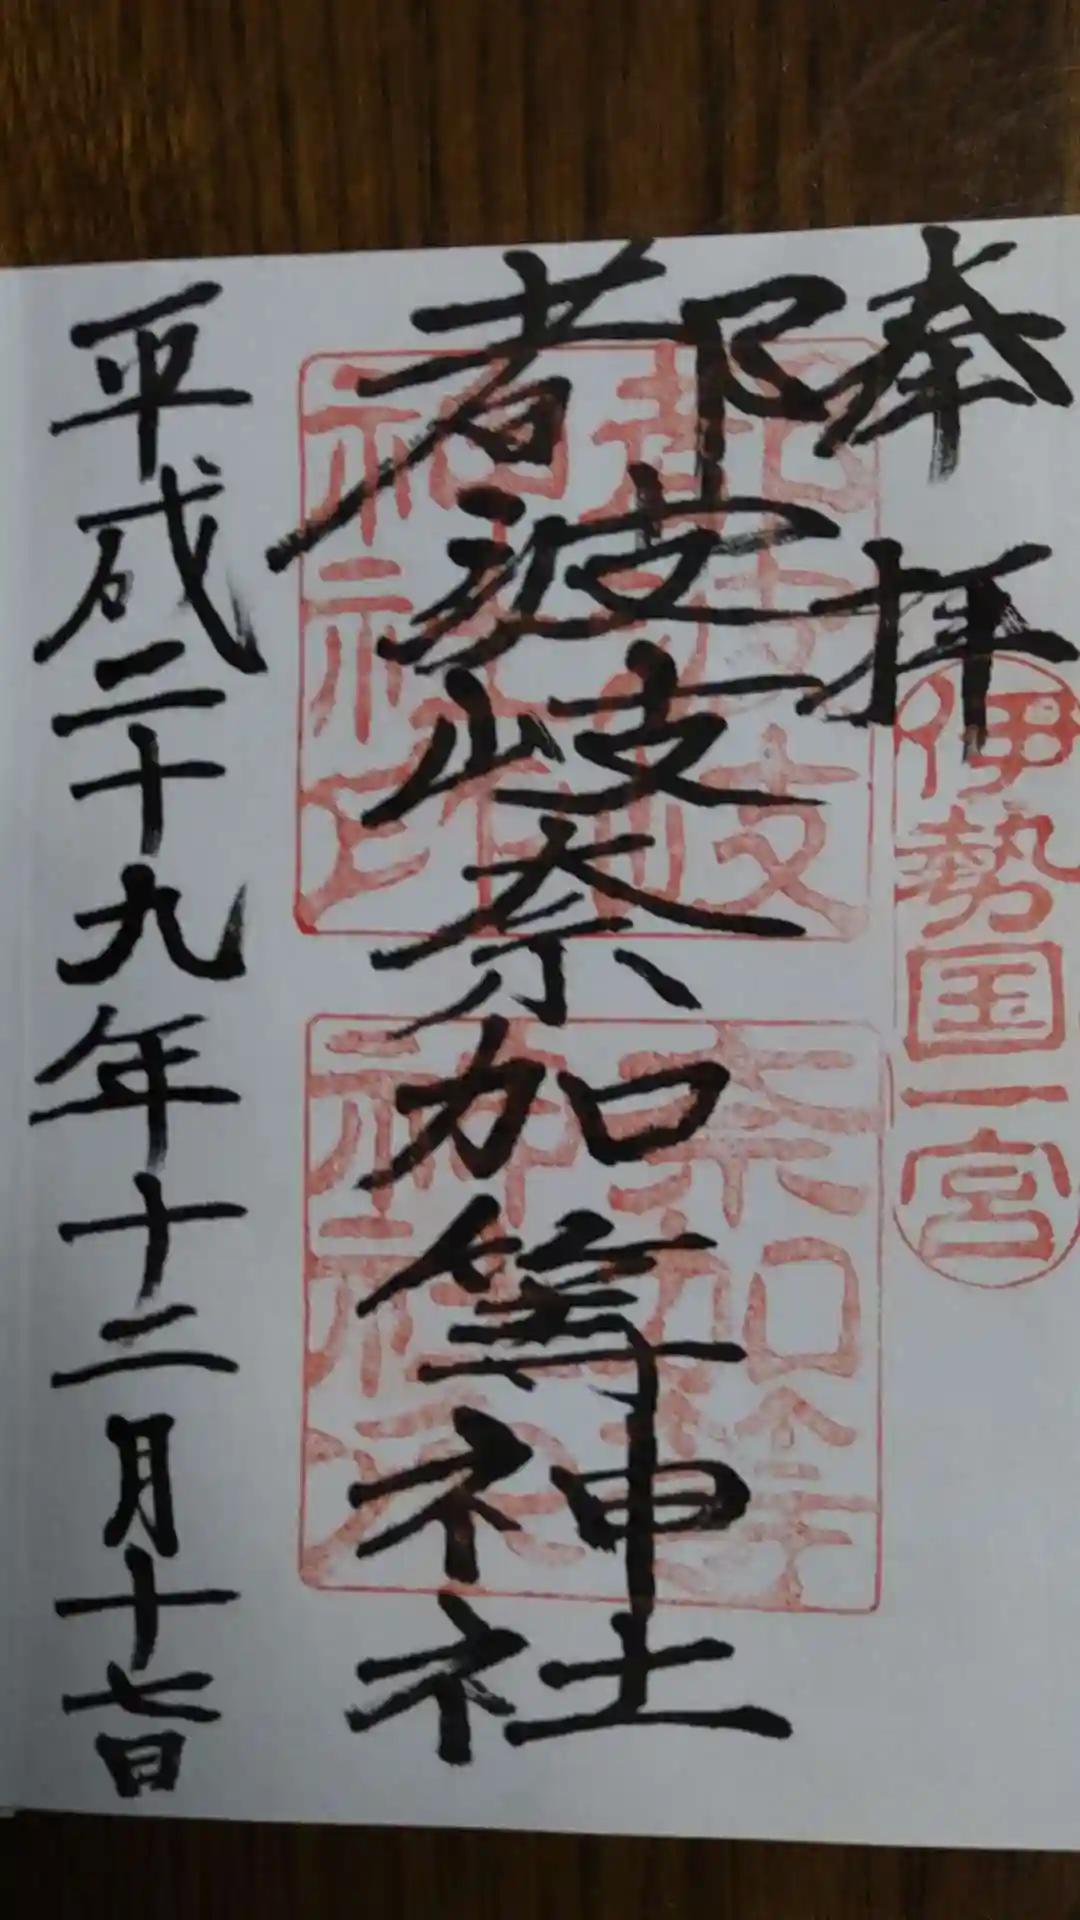 奉拝
伊勢国一宮
都波岐奈加等神社
都波岐
神社印
奈加等
神社
平成二十九年十二月十七日